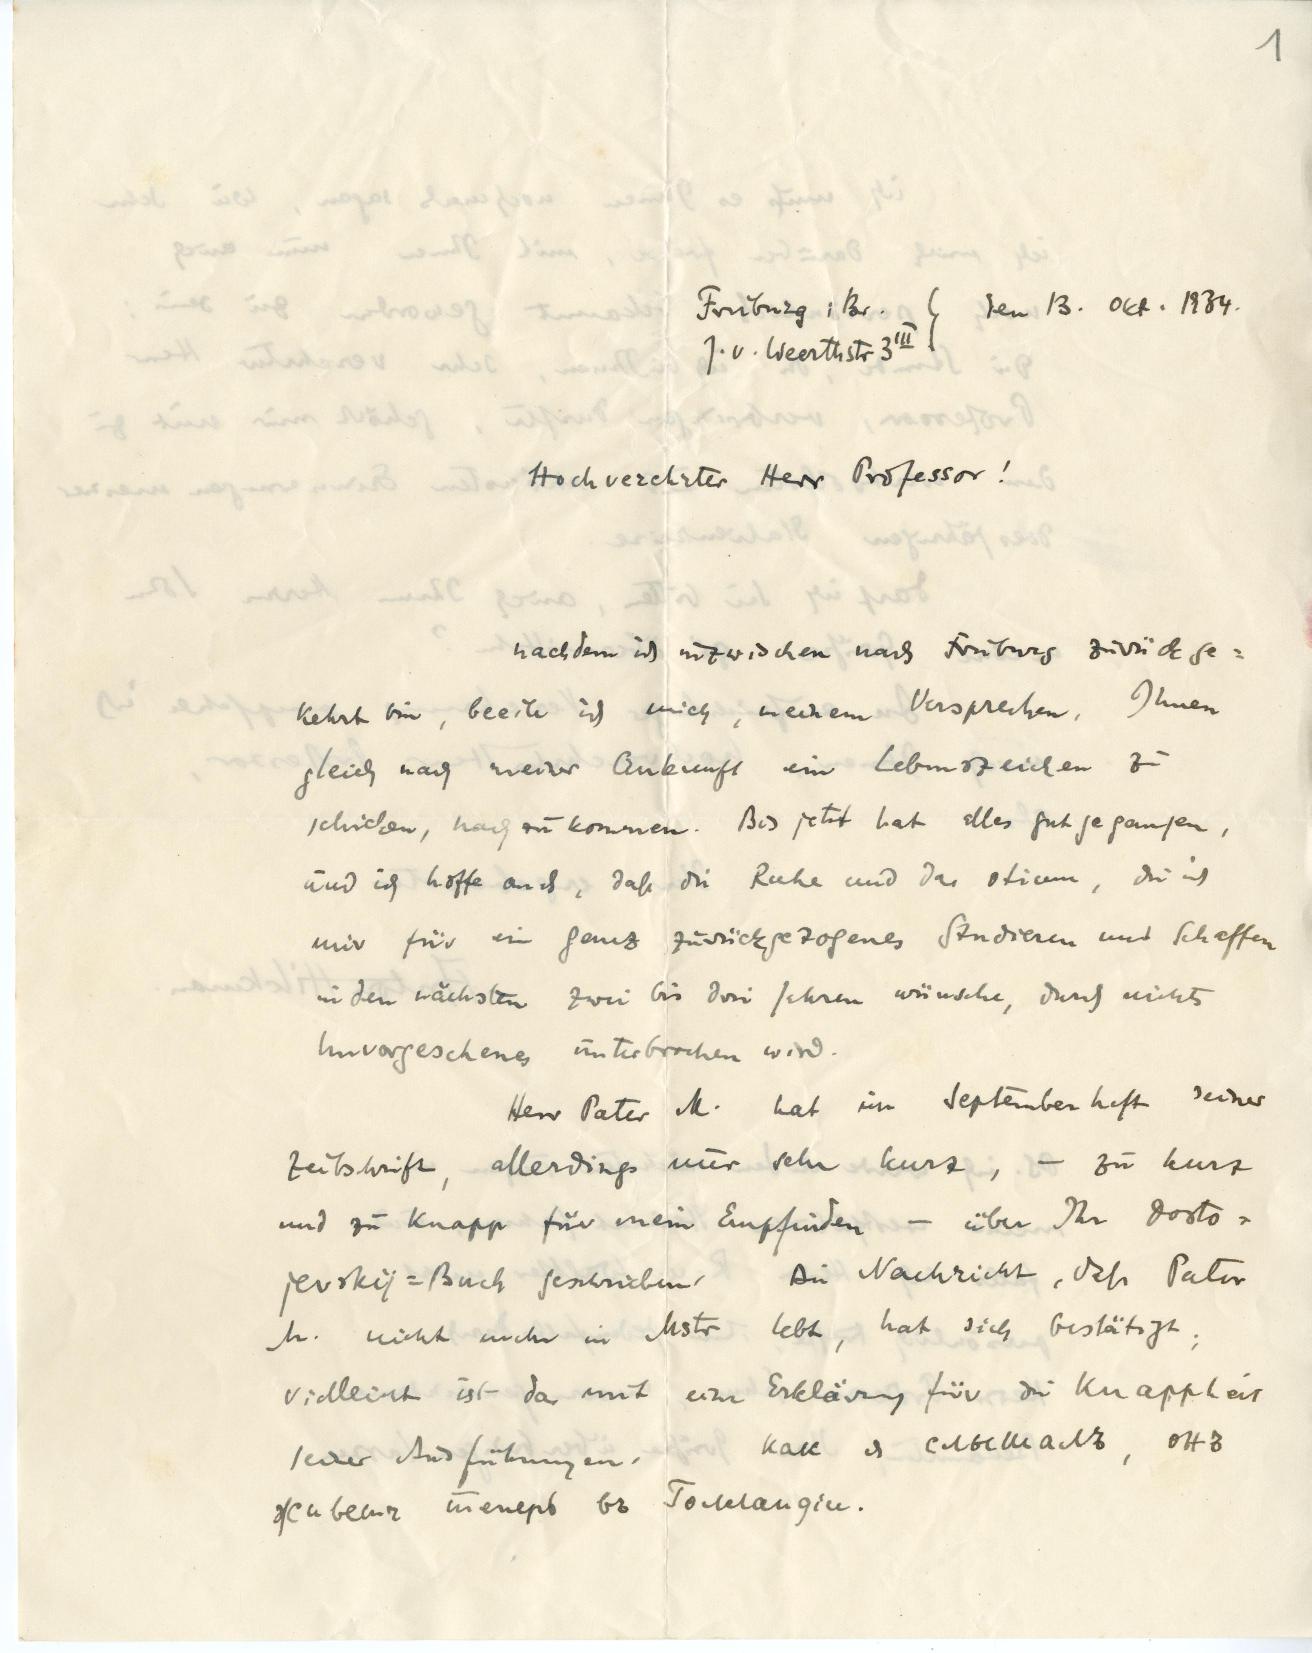 1
Freiburg i. Br. den 13. Okt. 1934.
J. v. Weerthstr 3 III
Hochverehrter Herr Professor!
nachdem ich inzwischen nach Freiburg zurückge=
kehrt bin, beeile ich mich, meinem Versprechen, Ihnen
gleich nach meiner Ankunft ein Lebenszeichen zu
schicken, nachzukommen. Bis jetzt hat alles gut gegangen,
und ich hoffe auch, daß die Ruhe und das otium, die ich
mir für ein ganz zurückgezogenes Studieren und Schaffen
in den nächsten zwei bis drei Jahren wünsche, durch nichts
Unvorgesehenes unterbrochen wird.
Herr Pater M. hat im Septemberheft seiner
Zeitschrift, allerdings nur sehr kurz, – zu kurz
und zu knapp für mein Empfinden – über Ihr Dosto=
jevskij=Buch geschrieben. Die Nachricht, daß Pater
M. nicht mehr in Mstr lebt, hat sich bestätigt;
vielleicht ist das mit eine Erklärung für die Knappheit
seiner Ausführungen. Как я слышалъ, онъ
живетъ теперь въ Голландіи.